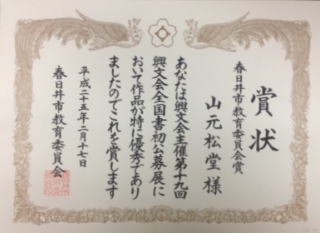 賞状
春日井市教育委員会賞
山元松堂 様
あなたは興文会主催第十九回
興文会全国書初公募展に
おいて作品が特に優秀であり
ましたのでこれを賞します
平成二十五年二月十七日
春日井市教育委員会